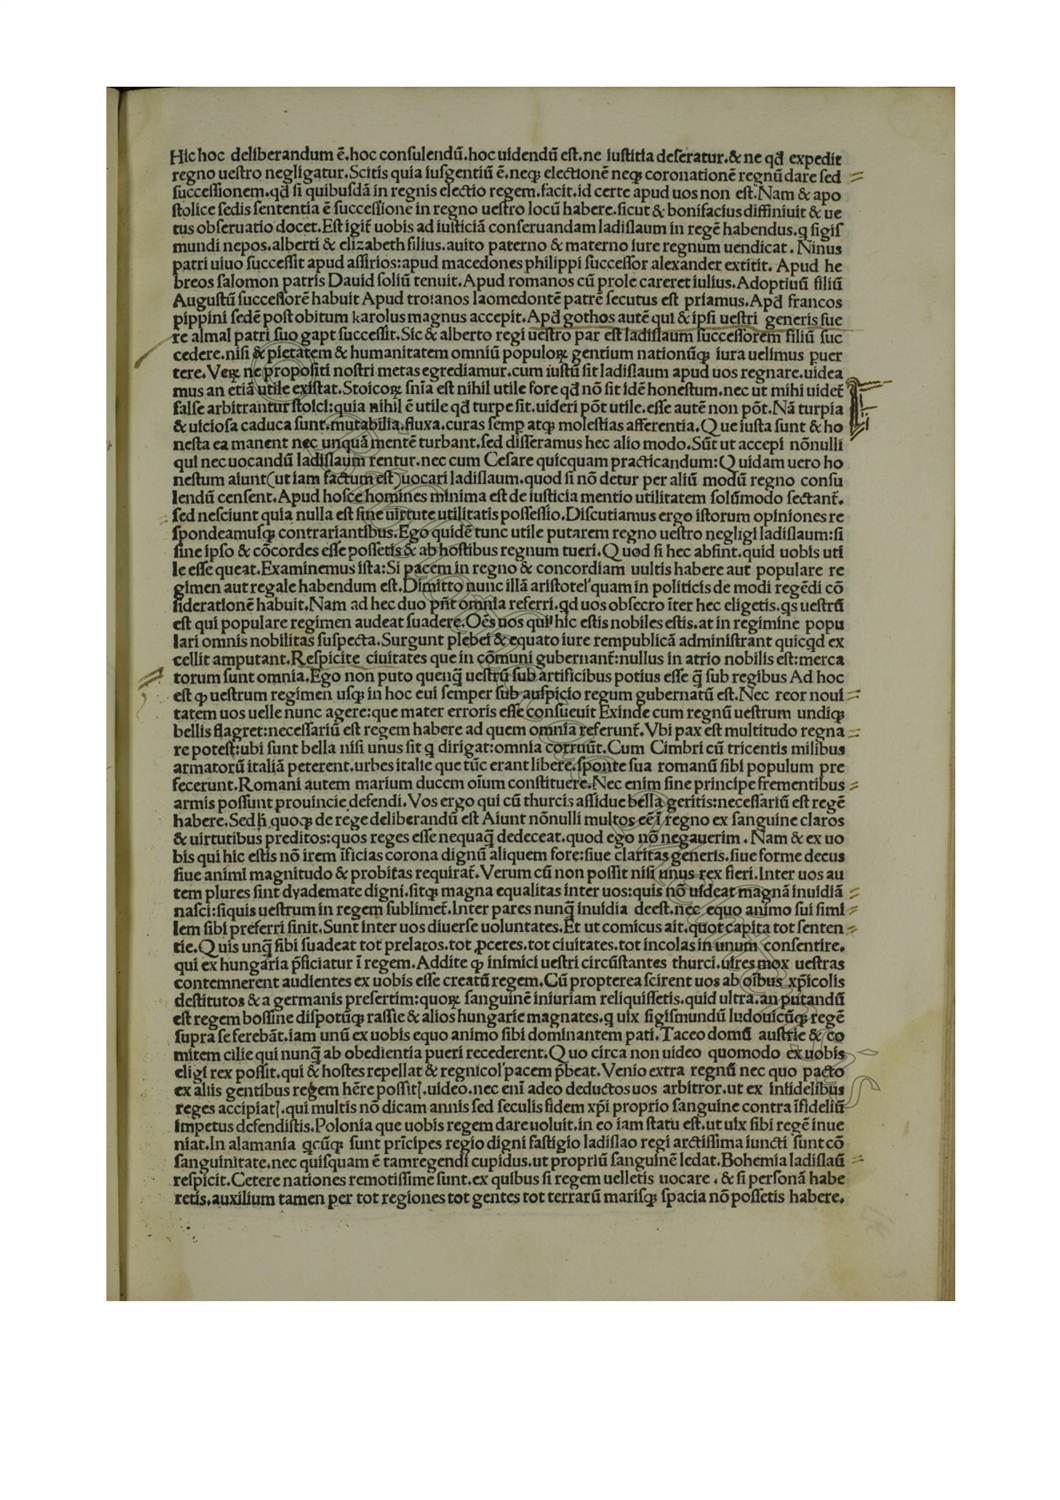 Hic hoc deliberandum ē.hoc conſulendū.hoc uidendū eſt.ne iuſtitia deſeratur.& ne qđ expedit
regno ueſtro negligatur.Scitis quia iuſgentiū ē.neqꝫ electionē neqꝫ coronationē regnū dare ſed
ſucceſſionem.qđ ſi quibuſdā in regnis electio regem.facit.id certe apud uos non eſt.Nam & apo
ſtolice ſedis ſententia ē ſucceſſione in regno ueſtro locū habere.ſicut & bonifacius diffiniuit & ue
tus obſeruatio docet.Eſt igit̄ uobis ad iuſticiā conſeruandam ladiſlaum in regē habendus.q ſigiſ
mundi nepos.alberti & elizabeth filius.auito paterno & materno iure regnum uendicat. Ninus
patri uiuo ſucceſſit apud aſſirios:apud macedones philippi ſucceſſor alexander extitit. Apud he
breos ſalomon patris Dauid ſoliū tenuit.Apud romanos cū prole careret iulius.Adoptiuū filiū
Auguſtū ſucceſſorē habuit Apud troianos laomedontē patrē ſecutus eſt priamus.Apđ francos
pippini ſedē poſt obitum karolus magnus accepit.Apđ gothos autē qui & ipſi ueſtri generis fue
re almal patri ſuo gapt ſucceſſit.Sic & alberto regi ueſtro par eſt ladiſlaum ſucceſſorem filiū ſuc
cedere.niſi & pietatem & humanitatem omniū populoꝝ gentium nationūqꝫ iura uelimus puer
tere.Veꝝ ne propoſiti noſtri metas egrediamur.cum iuſtū ſit ladiſlaum apud uos regnare.uidea
mus an etiā utile exiſtat.Stoicoꝝ ſn̄ia eſt nihil utile fore qđ nō ſit idē honeſtum.nec ut mihi uidet̄
falſe arbitrantur ſtoici:quia nihil ē utile qđ turpe ſit.uideri pōt utile.eſſe autē non pōt.Nā turpia
& uicioſa caduca ſunt.mutabilia.fluxa.curas ſemꝑ atqꝫ moleſtias afferentia.Que iuſta ſunt & ho
neſta ea manent nec unquā mentē turbant.ſed diſſeramus hec alio modo.Sūt ut accepi nōnulli
qui nec uocandū ladiſlaum rentur.nec cum Ceſare quicquam practicandum:Quidam uero ho
neſtum aiunt(ut iam factum eſt)uocari ladiſlaum.quod ſi nō detur per aliū modū regno conſu
lendū cenſent.Apud hoſce homines minima eſt de iuſticia mentio utilitatem ſolūmodo ſectant̄.
ſed neſciunt quia nulla eſt ſine uirtute utilitatis poſſeſſio.Diſcutiamus ergo iſtorum opiniones re
ſpondeamuſqꝫ contrariantibus.Ego quidē tunc utile putarem regno ueſtro negligi ladiſlaum:ſi
ſine ipſo & cōcordes eſſe poſſetis & ab hoſtibus regnum tueri.Quod ſi hec abſint.quid uobis uti
le eſſe queat.Examinemus iſta:Si pacem in regno & concordiam uultis habere aut populare re
gimen aut regale habendum eſt.Dimitto nunc illā ariſtotel'quam in politicis de modi regēdi cō
ſiderationē habuit.Nam ad hec duo pn̄t omnia referri.qđ uos obſecro īter hec eligetis.qs ueſtrū
eſt qui populare regimen audeat ſuadere.Oēs uos qui hic eſtis nobiles eſtis.at in regimine popu
lari omnis nobilitas ſuſpecta.Surgunt plebei & equato iure rempublicā adminiſtrant quicqđ ex
cellit amputant.Reſpicite ciuitates que in cōmuni gubernant̄:nullus in atrio nobilis eſt:merca
torum ſunt omnia.Ego non puto quenq̄ ueſtrū ſub artificibus potius eſſe q̄ ſub regibus Ad hoc
eſt ꝙ ueſtrum regimen uſqꝫ in hoc eui ſemper ſub auſpicio regum gubernatū eſt.Nec reor noui
tatem uos uelle nunc agere:que mater erroris eſſe conſueuit Exinde cum regnū ueſtrum undiqꝫ
bellis flagret:neceſſariū eſt regem habere ad quem omnia referunt̄.Vbi pax eſt multitudo regna
re poteſt:ubi ſunt bella niſi unus ſit q dirigat:omnia corruūt.Cum Cimbri cū tricentis milibus
armatorū italiā peterent.urbes italie que tūc erant libere.ſponte ſua romanū ſibi populum pre
fecerunt.Romani autem marium ducem oīum conſtituere.Nec enim ſine principe frementibus
armis poſſunt prouincie defendi.Vos ergo qui cū thurcis aſſidue bella geritis:neceſſariū eſt regē
habere.Sed quoqꝫ de rege deliberandū eſt Aiunt nōnulli multos eē ī regno ex ſanguine claros
& uirtutibus preditos:quos reges eſſe nequaq̄ dedeceat.quod ego nō negauerim. Nam & ex uo
bis qui hic eſtis nō irem īficias corona dignū aliquem fore:ſiue claritas generis.ſiue forme decus
ſiue animi magnitudo & probitas requirat̄.Verum cū non poſſit niſi unus rex fieri.Inter uos au
tem plures ſint dyademate digni.ſitqꝫ magna equalitas inter uos:quis nō uideat magnā inuidiā
naſci:ſiquis ueſtrum in regem ſublimet̄.Inter pares nunq̄ inuidia deeſt.nec equo animo ſui ſimi
lem ſibi preferri ſinit.Sunt inter uos diuerſe uoluntates.Et ut comicus ait.quot capita tot ſenten
tie.Quis unq̄ ſibi ſuadeat tot prelatos.tot ꝓceres.tot ciuitates.tot incolas in unum conſentire.
qui ex hungaria p̄ficiatur ī regem.Addite ꝙ inimici ueſtri circūſtantes thurci.uires mox ueſtras
contemnerent audientes ex uobis eſſe creatū regem.Cū propterea ſcirent uos ab oībus xp̄icolis
deſtitutos & a germanis preſertim:quoꝝ ſanguinē iniuriam reliquiſſetis.quid ultra.an putandū
eſt regem boſſine diſpotūqꝫ raſſie & alios hungarie magnates.q uix ſigiſmundū ludouicūqꝫ regē
ſupra ſe ferebāt.iam unū ex uobis equo animo ſibi dominantem pati.Taceo domū auſtrie & co
mitem cilie qui nunq̄ ab obedientia pueri recederent.Quo circa non uideo quomodo ex uobis
eligi rex poſſit.qui & hoſtes repellat & regnicol'pacem p̄beat.Venio extra regnū nec quo pacto
ex aliis gentibus regem hēre poſſit.uideo.nec enī adeo deductos uos arbitror.ut ex infidelibus
reges accipiat.qui multis nō dicam annis ſed ſeculis fidem xp̄i proprio ſanguine contra īfideliū
impetus defendiſtis.Polonia que uobis regem dare uoluit.in eo iam ſtatu eſt.ut uix ſibi regē inue
niat.In alamania qcūqꝫ ſunt prīcipes regio digni faſtigio ladiſlao regi arctiſſima iuncti ſunt cō
ſanguinitate.nec quiſquam ē tamregendi cupidus.ut propriū ſanguinē ledat.Bohemia ladiſlaū
reſpicit.Cetere nationes remotiſſime ſunt.ex quibus ſi regem uelletis uocare. & ſi perſonā habe
retis.auxilium tamen per tot regiones tot gentes tot terrarū mariſqꝫ ſpacia nō poſſetis habere.